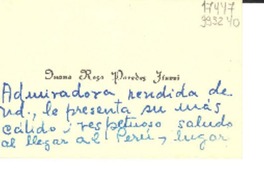 17447
Juana Rosa Paredes
Admiradora rendida de
Ud., le presenta su más
cálido y respetuoso saludo
al llegar al Perú, lugar